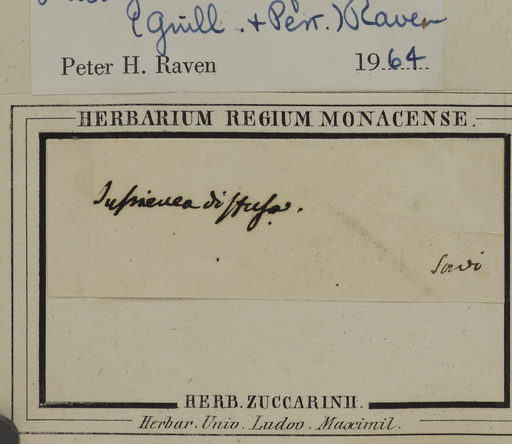 (Guill. + Perr.) Raven
Peter H. Raven 1964
HERBARIUM REGIUM MONACENSE.
Jussieuea diffusa.
Savi
HERB. ZUCCARINII.
Herbar. Univ. Ludov. Maximil.